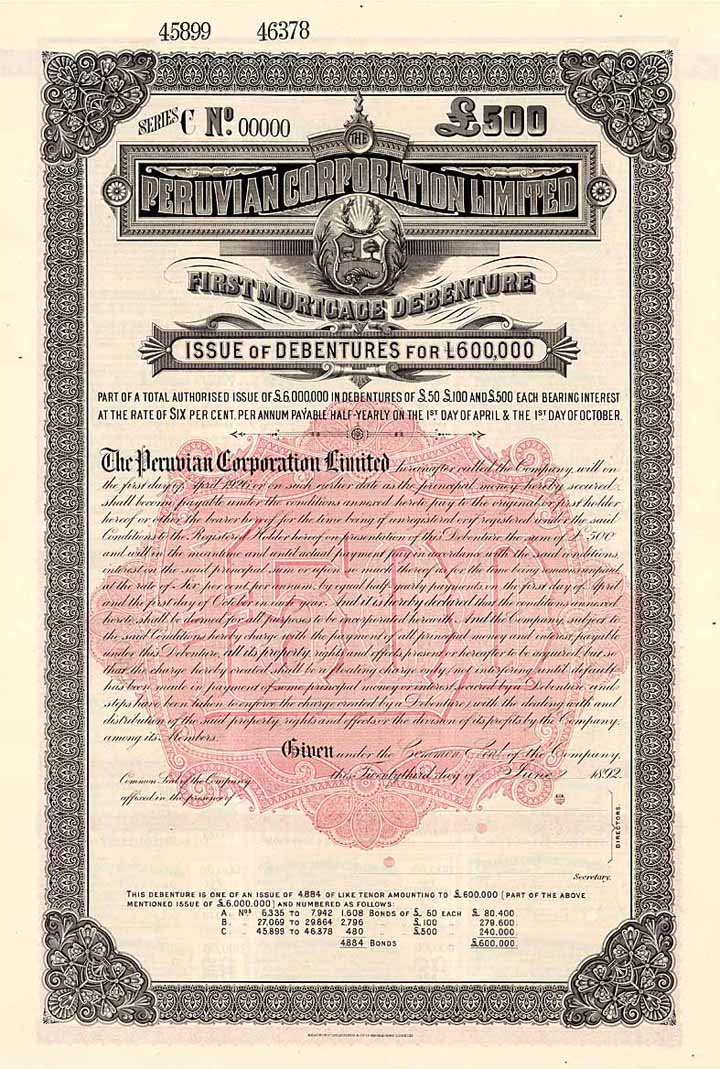 45899 46378
SERIES C Nº 00000 £500
THE
PERUVIAN CORPORATION LIMITED
FIRST MORTGAGE DEBENTURE
ISSUE OF DEBENTURES FOR £600,000
PART OF A TOTAL AUTHORISED ISSUE OF £6,000,000 IN DEBENTURES OF £50 £100 AND £500 EACH BEARING INTEREST
AT THE RATE OF SIX PER CENT. PER ANNUM PAYABLE HALF-YEARLY ON THE 1ST DAY OF APRIL & THE 1ST DAY OF OCTOBER.
The Peruvian Corporation Limited hereafter called the Company, will on
the first day of April 1926 or on such earlier date as the principal money hereby secured
shall become payable under the conditions annexed hereto pay to the original or first holder
hereof or other the bearer hereof for the time being if unregistered or if registered under the said
Conditions to the Registered Holder hereof on presentation of this Debenture the sum of £500
and will in the meantime and until actual payment in accordance with the said conditions,
interest on the said principal money or upon so much thereof as for the time being remains unpaid
at the rate of Six per cent. per annum, by equal half-yearly payments on the first day of April
and the first day of October in each year. And it is hereby declared that the conditions annexed
hereto shall be deemed for all purposes to be incorporated herewith And the Company, subject to
the said Conditions hereby charge with the payment of all principal money and interest payable
under this Debenture, all its property rights and effects present or hereafter to be acquired but so
that the charge hereby created shall be a floating charge only (not interfering until default
has been made in payment of some principal money or interest secured by a Debenture and
steps have been taken to enforce the charge created by a Debenture) with the dealing with and
distribution of the said property rights and effects or the division of its profits by the Company,
among its Members.
Given under the Common Seal of the Company,
this Twenty third day of June 1892
Common Seal of the Company
affixed in the presence of
DIRECTORS.
Secretary.
THIS DEBENTURE IS ONE OF AN ISSUE OF 4884 OF LIKE TENOR AMOUNTING TO £600,000 (PART OF THE ABOVE
MENTIONED ISSUE OF £6,000,000) AND NUMBERED AS FOLLOWS:
A. Nos 6,335 TO 7,942 1,608 BONDS OF £50 EACH £80,400
B. „ 27,069 TO 29,864 2,796 „ „ £100 „ 279,600
C. „ 45,899 TO 46,378 480 „ „ £500 „ 240,000
4884 BONDS £600,000